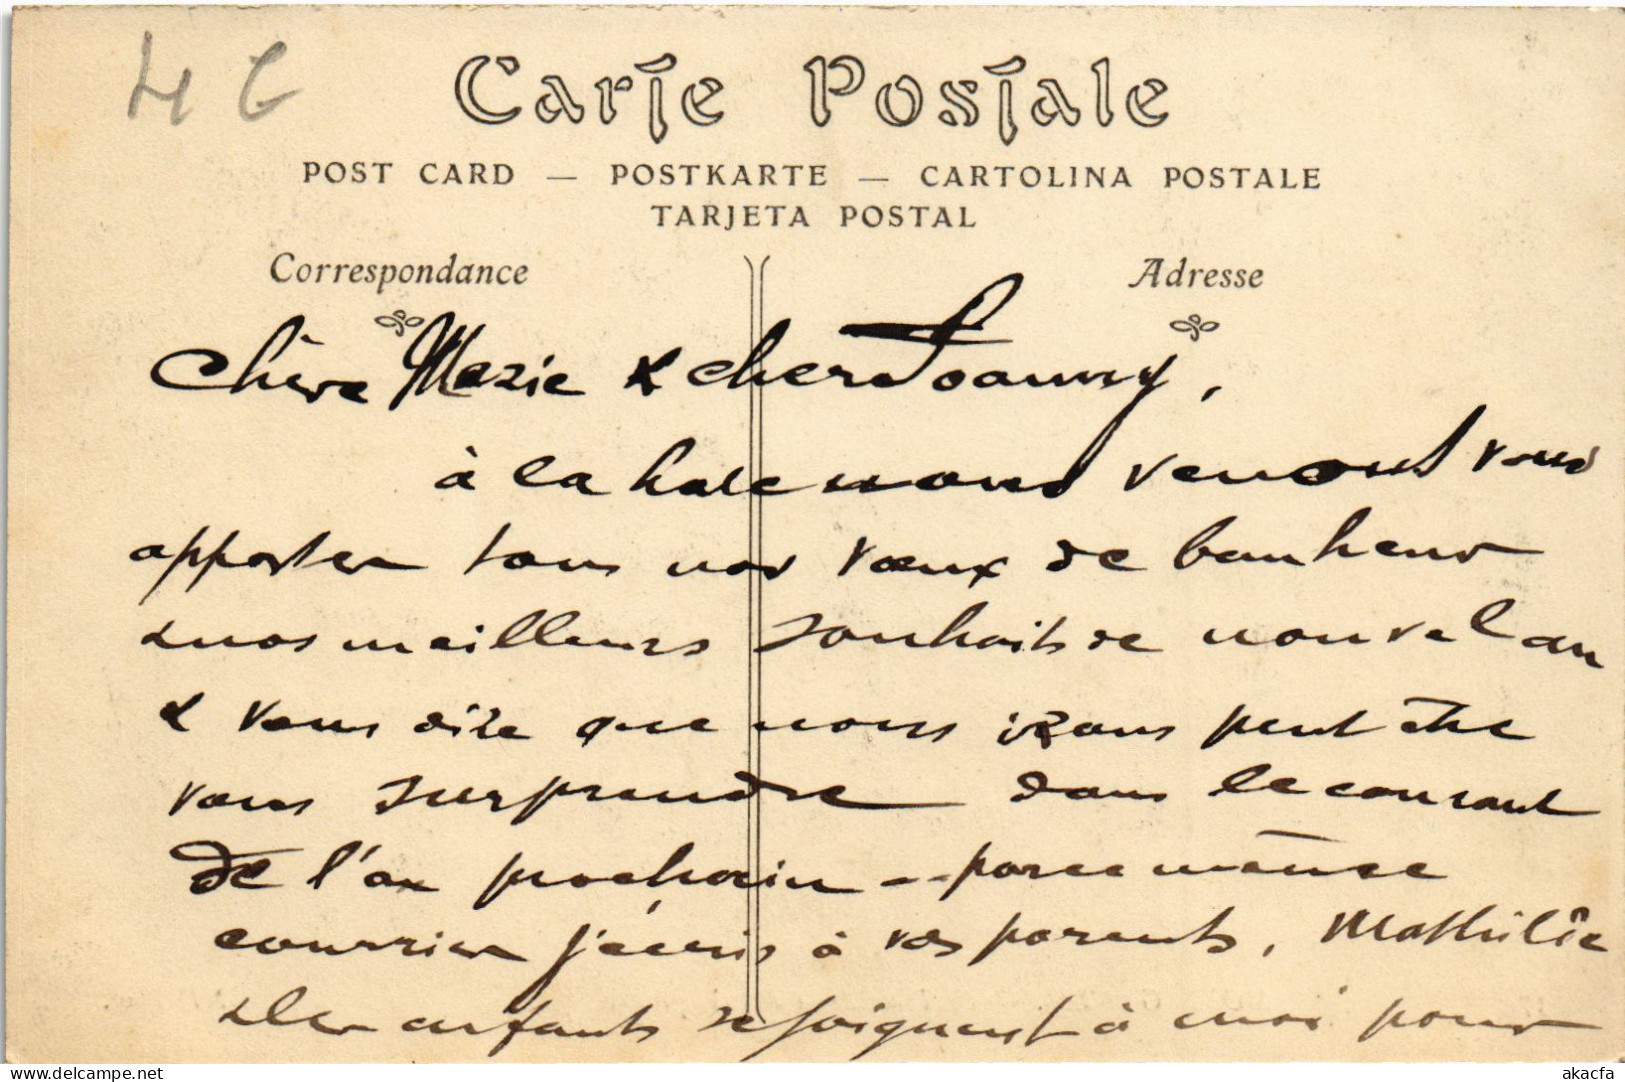 4 G
Carte Postale
POST CARD — POSTKARTE — CARTOLINA POSTALE
TARJETA POSTAL
Correspondance
Adresse
Chère Marie & cher
à la hate nous venons vous
apporter tous nos vœux de bonheur
& nos meilleurs souhaits de nouvel an
& vous dire que nous irons peut être
vous surprendre dans le courant
de l'an prochain -- par ce même
courrier j'écris à vos parents, Mathilde
& les enfants se joignent à moi pour
delcampe.net
akacfa